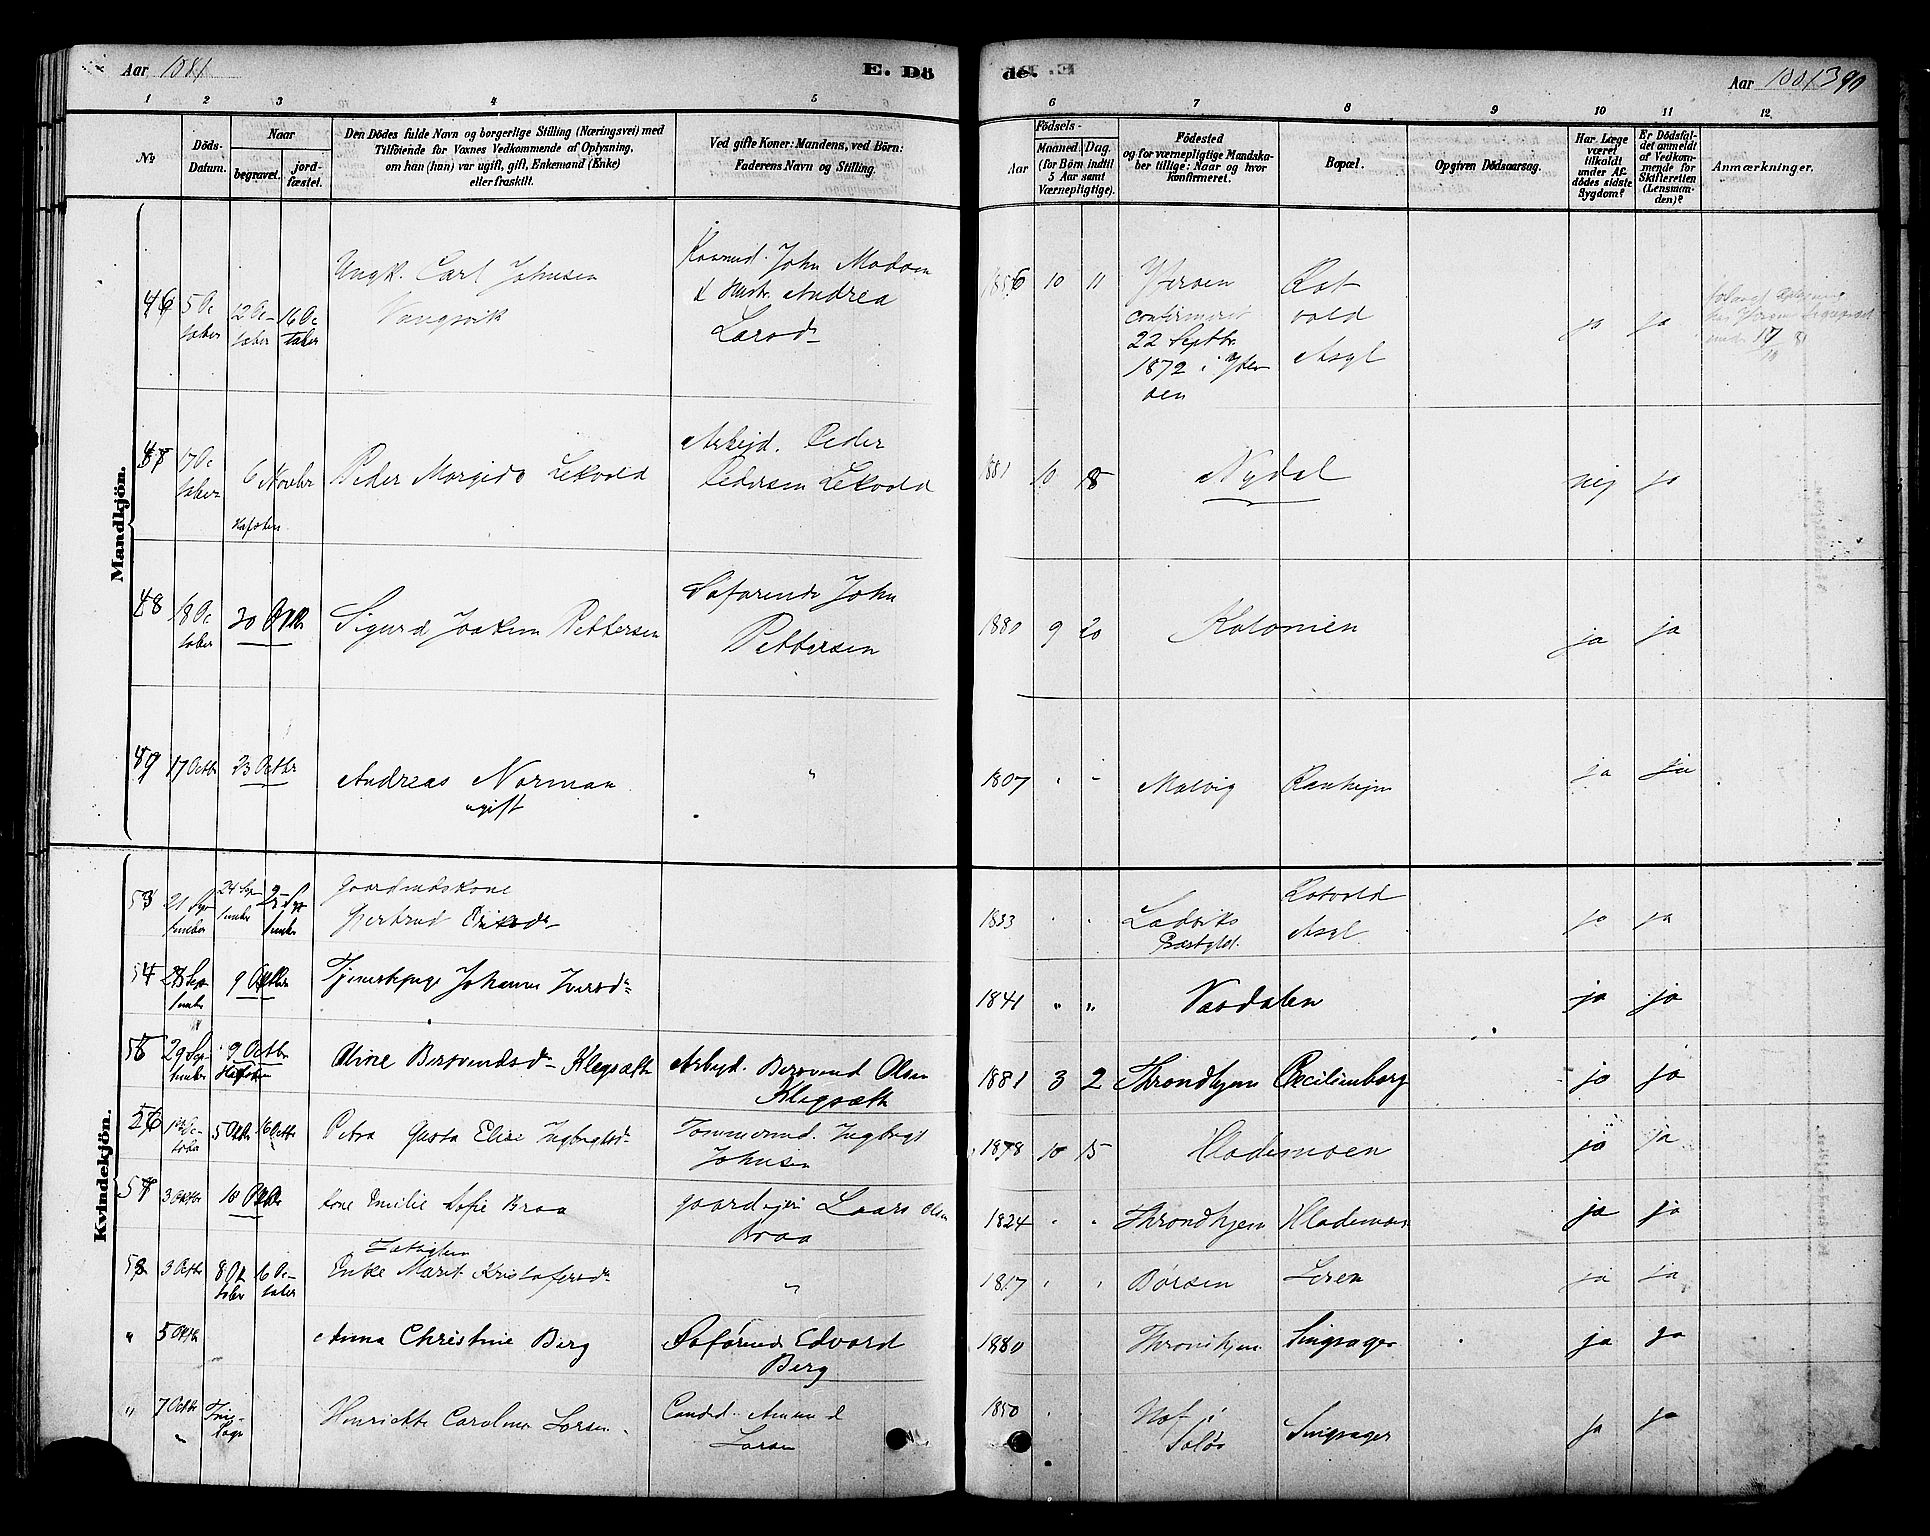 Aar 1881
E. Dö
de.
Aar 1881 390
1 2 3 4 5 6 7 8 9 10 11 12.
No
Döds-Datum.
Naar
begravet.
jordfæstet.
Den Dödes fulde Navn og borgerlige Stilling (Næringsvei) med
Tilföiende for Voxnes Vedkommende af Oplysning,
om han (hun) var ugift, gift, Enkemand (Enke)
eller fraskilt.
Ved gifte Koner: Mandens, ved Börn:
Faderens Navn og Stilling.
Födsels-
Aar
Maaned. Dag.
(for Börn indtil
5 Aar samt
Værnepligtige).
Födested
og for værnepligtige Mandska-
ber tillige: Naar og hvor
konfirmeret.
Bopæl.
Opgiven Dödsaarsag.
Har Læge
været
tilkaldt
under Af-
dödes sidste
Sygdom?
Er Dödsfal-
det anmeldt
af Vedkom-
mende for
Skifteretten
(Lensman-
den)?
Anmærkninger.
Mandkjön.
46 5 Oc
tober
12 Oc-
tober
16 Oc
tober
Ungk. Carl Johnsen
Vangsvik
John Madsen
& Hustr. Andrea
Larsd.
1856 10 11
Ytteröen
confirmeret
22 Septbr
1872 i Ytter
öen
Rot
vold
Asyl
ja ja
47 17 Oc
tober
6 Novebr
Peder Lekvold
Arbejd. Peder
Pedersen Lekvold
1881 10 18
Nydal
nej ja
48 18 Oc
tober
30 Octbr
Sigurd Joakim Pettersen
Söfarende John
Pettersen
1880 9 20
Kolonien
ja ja
49 17 Octbr 23 Octbr
Andreas Norman
ugift
"
1807
Malvig
Ranhejm
ja ja
Kvindekjön.
53 21 Sep
tember
24 Sep
tember
Gaardmdskone
Gjertrud
1833
Prästgjld.
Rotvold
Asyl
ja ja
54 28 Sep
tember
9 Octbr
Tjenestepige Johanna Iversd.
1841 " "
Vardalen
ja ja
55 29 Sep
tember
9 Octbr
Oline Bersvendsd. Klegsæth
Arbejd. Bersvend Olsen
Klegsæth
1881 3 2 Throndhjem Cecilienborg
ja ja
56
5 Octbr 16 Octbr
Petra Elise Ingbrigtsd.
Tømmermd. Ingbrigt
Johnsen
1878 10 15
Lademoen
ja ja
57 3 Octbr 10 Octbr
Kone Emilie Sofie Braa
Gaardejer Laars Olsen
Braa
1824 Throndhjem Lademoen
ja ja
58 3 Octbr
8 Ok
tober
16 Oc-
tober
Enke Marit Kristofersd.
"
1817 Börsen Leren
ja ja
" 5 Octbr
Anna Christine Berg
Söfarende Edvard
Berg
1880 Throndhjem Singsager
ja ja
" 7 Octbr
Henriette Caroline Larsen
Candid. Amund
Larsen
1850
Hof i
Solör
Singsager
ja ja